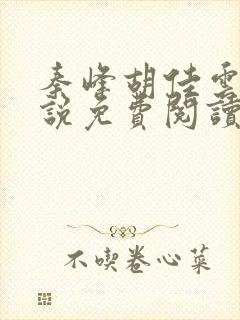 秦峰胡佳雲
說免費閱讀
不喫卷心菜